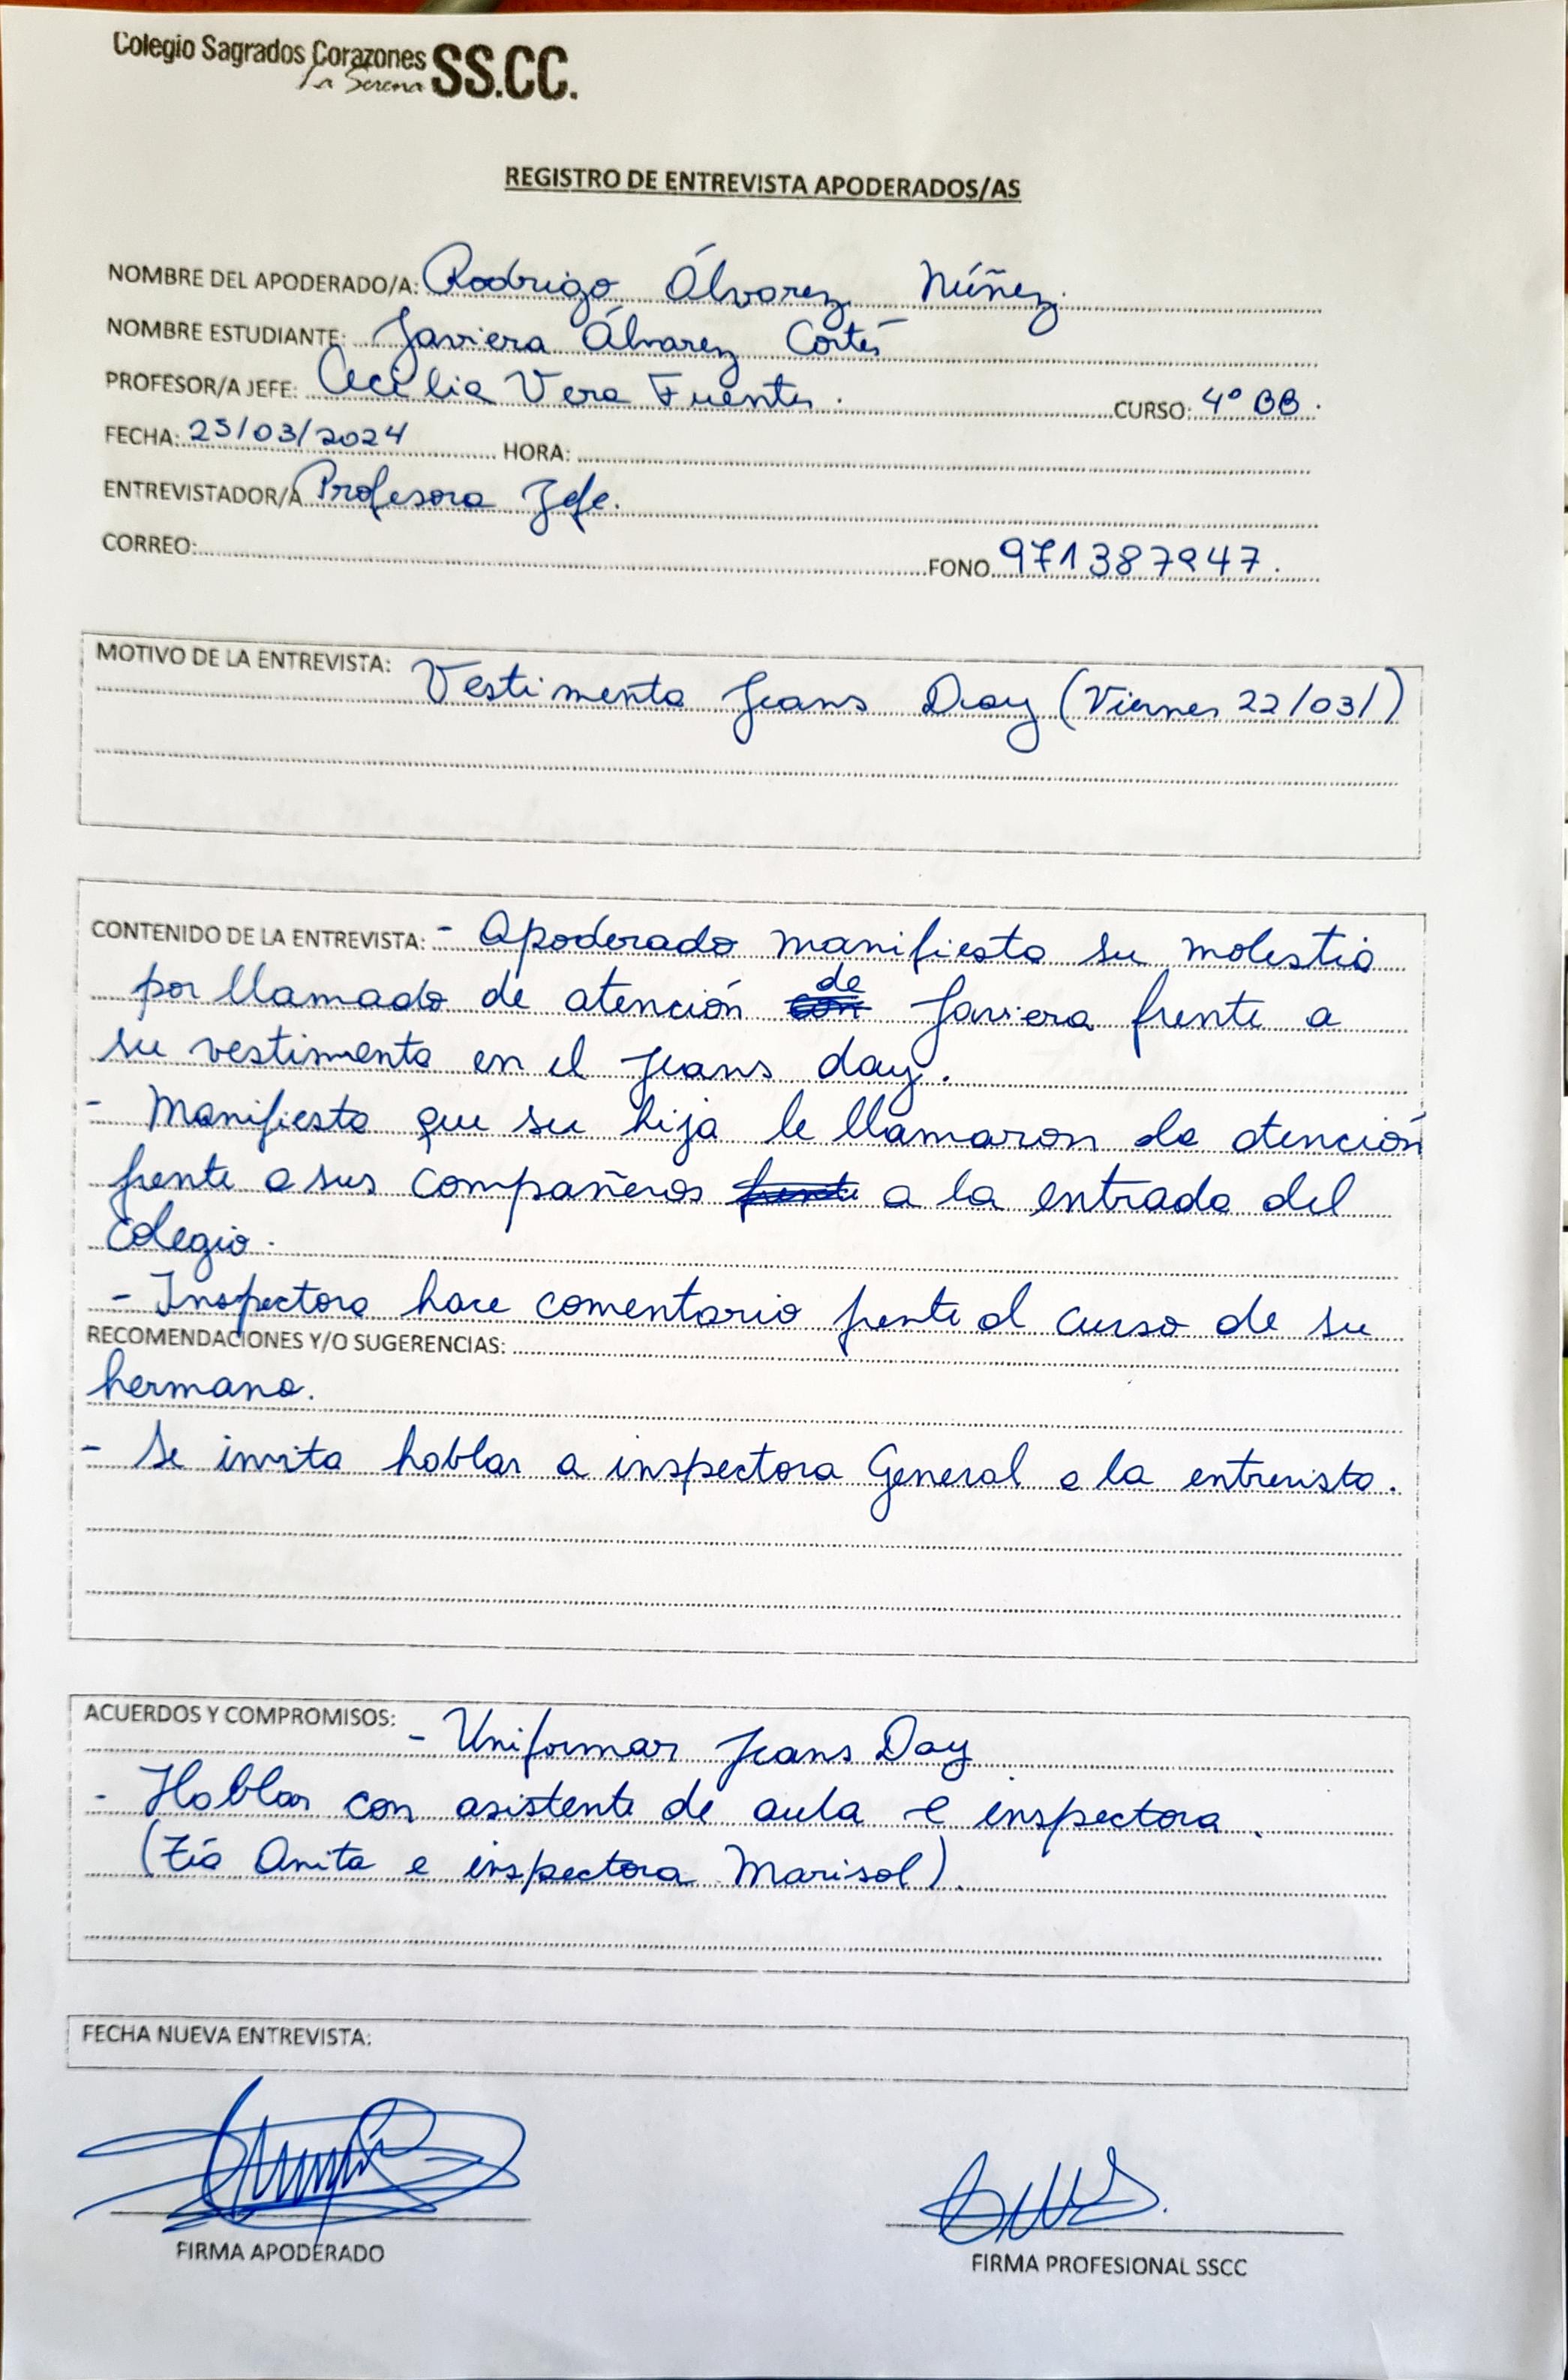 Colegio Sagrados Corazones SS.CC.
La Serena
REGISTRO DE ENTREVISTA APODERADOS/AS
NOMBRE DEL APODERADO/A: Rodrigo Álvarez Núñez.
NOMBRE ESTUDIANTE: Javiera Álvarez Cortés
PROFESOR/A JEFE: Cecilia Vera Fuentes. CURSO: 4° BB.
FECHA: 25/03/2024 HORA:
ENTREVISTADOR/A Profesora Jefe.
CORREO: FONO 971387947.
MOTIVO DE LA ENTREVISTA: Vestimenta Jeans Day (Viernes 22/03/)
CONTENIDO DE LA ENTREVISTA: - Apoderado manifiesta su molestia
por llamado de atención de Javiera frente a
su vestimenta en el Jeans day.
- Manifiesta que su hija le llamaron la atención
frente a sus compañeros a la entrada del
colegio.
- Inspectora hace comentario frente al curso de su
RECOMENDACIONES Y/O SUGERENCIAS:
hermana.
- Se invita hablar a inspectora General a la entrevista.
ACUERDOS Y COMPROMISOS: - Uniformar Jeans Day
- Hablar con asistente de aula e inspectora.
(Tía Anita e inspectora Marisol).
FECHA NUEVA ENTREVISTA:
FIRMA APODERADO
FIRMA PROFESIONAL SSCC